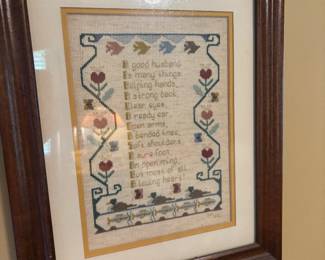 A good husband
Is many things.
Helping hands,
A strong back,
Clear eyes,
A ready ear,
Open arms,
A bended knee,
Soft shoulders,
A sure foot,
An open mind,
But most of all
A loving heart!